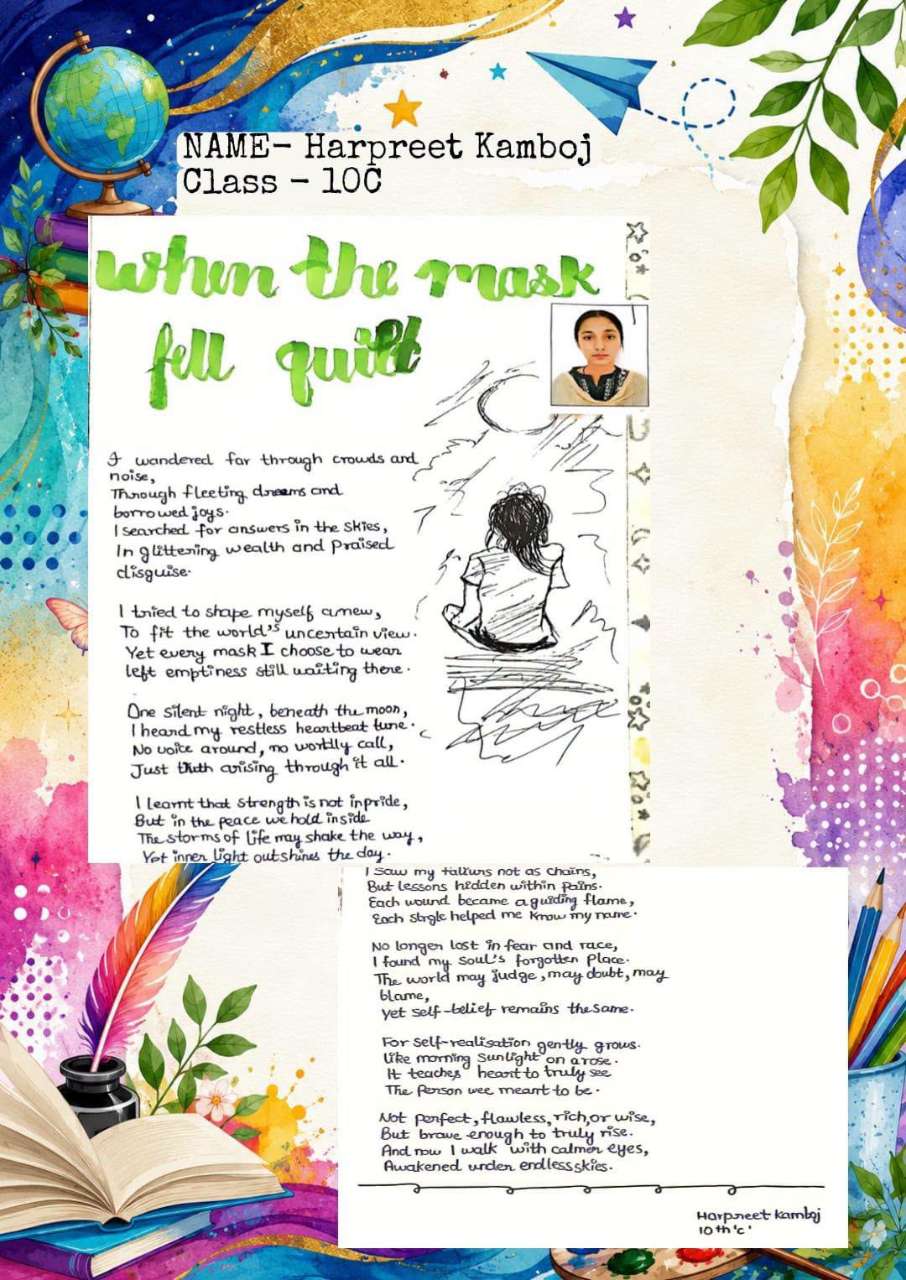 NAME- Harpreet Kamboj
Class - 10C
when the mask
fell quiet
I wandered far through crowds and
noise,
Through fleeting dreams and
borrowed joys.
I searched for answers in the skies,
In glittering wealth and Praised
disguise.
I tried to shape myself anew,
To fit the world's uncertain view.
Yet every mask I choose to wear
left emptiness still waiting there.
One silent night, beneath the moon,
I heard my restless heartbeat tune.
No voice around, no worldly call,
Just truth arising through it all.
I learnt that strength is not in pride,
But in the peace we hold inside
The storms of life may shake the way,
Yet inner light outshines the day.
I saw my not as chains,
But lessons hidden within pains.
Each wound became a guiding flame,
Each helped me know my name.
No longer lost in fear and race,
I found my soul's forgotten place.
The world may judge, may doubt, may
blame,
Yet self-belief remains the same.
For self-realisation gently grows.
like morning sunlight on a rose.
It teaches heart to truly see
The Person wee meant to be.
Not perfect, flawless, rich, or wise,
But brave enough to truly rise.
And now I walk with calmer eyes,
Awakened under endless skies.
Harpreet Kamboj
10th 'c'